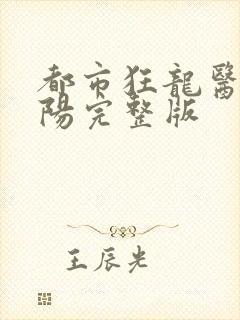 都市狂龍醫
陽完整版
王辰光